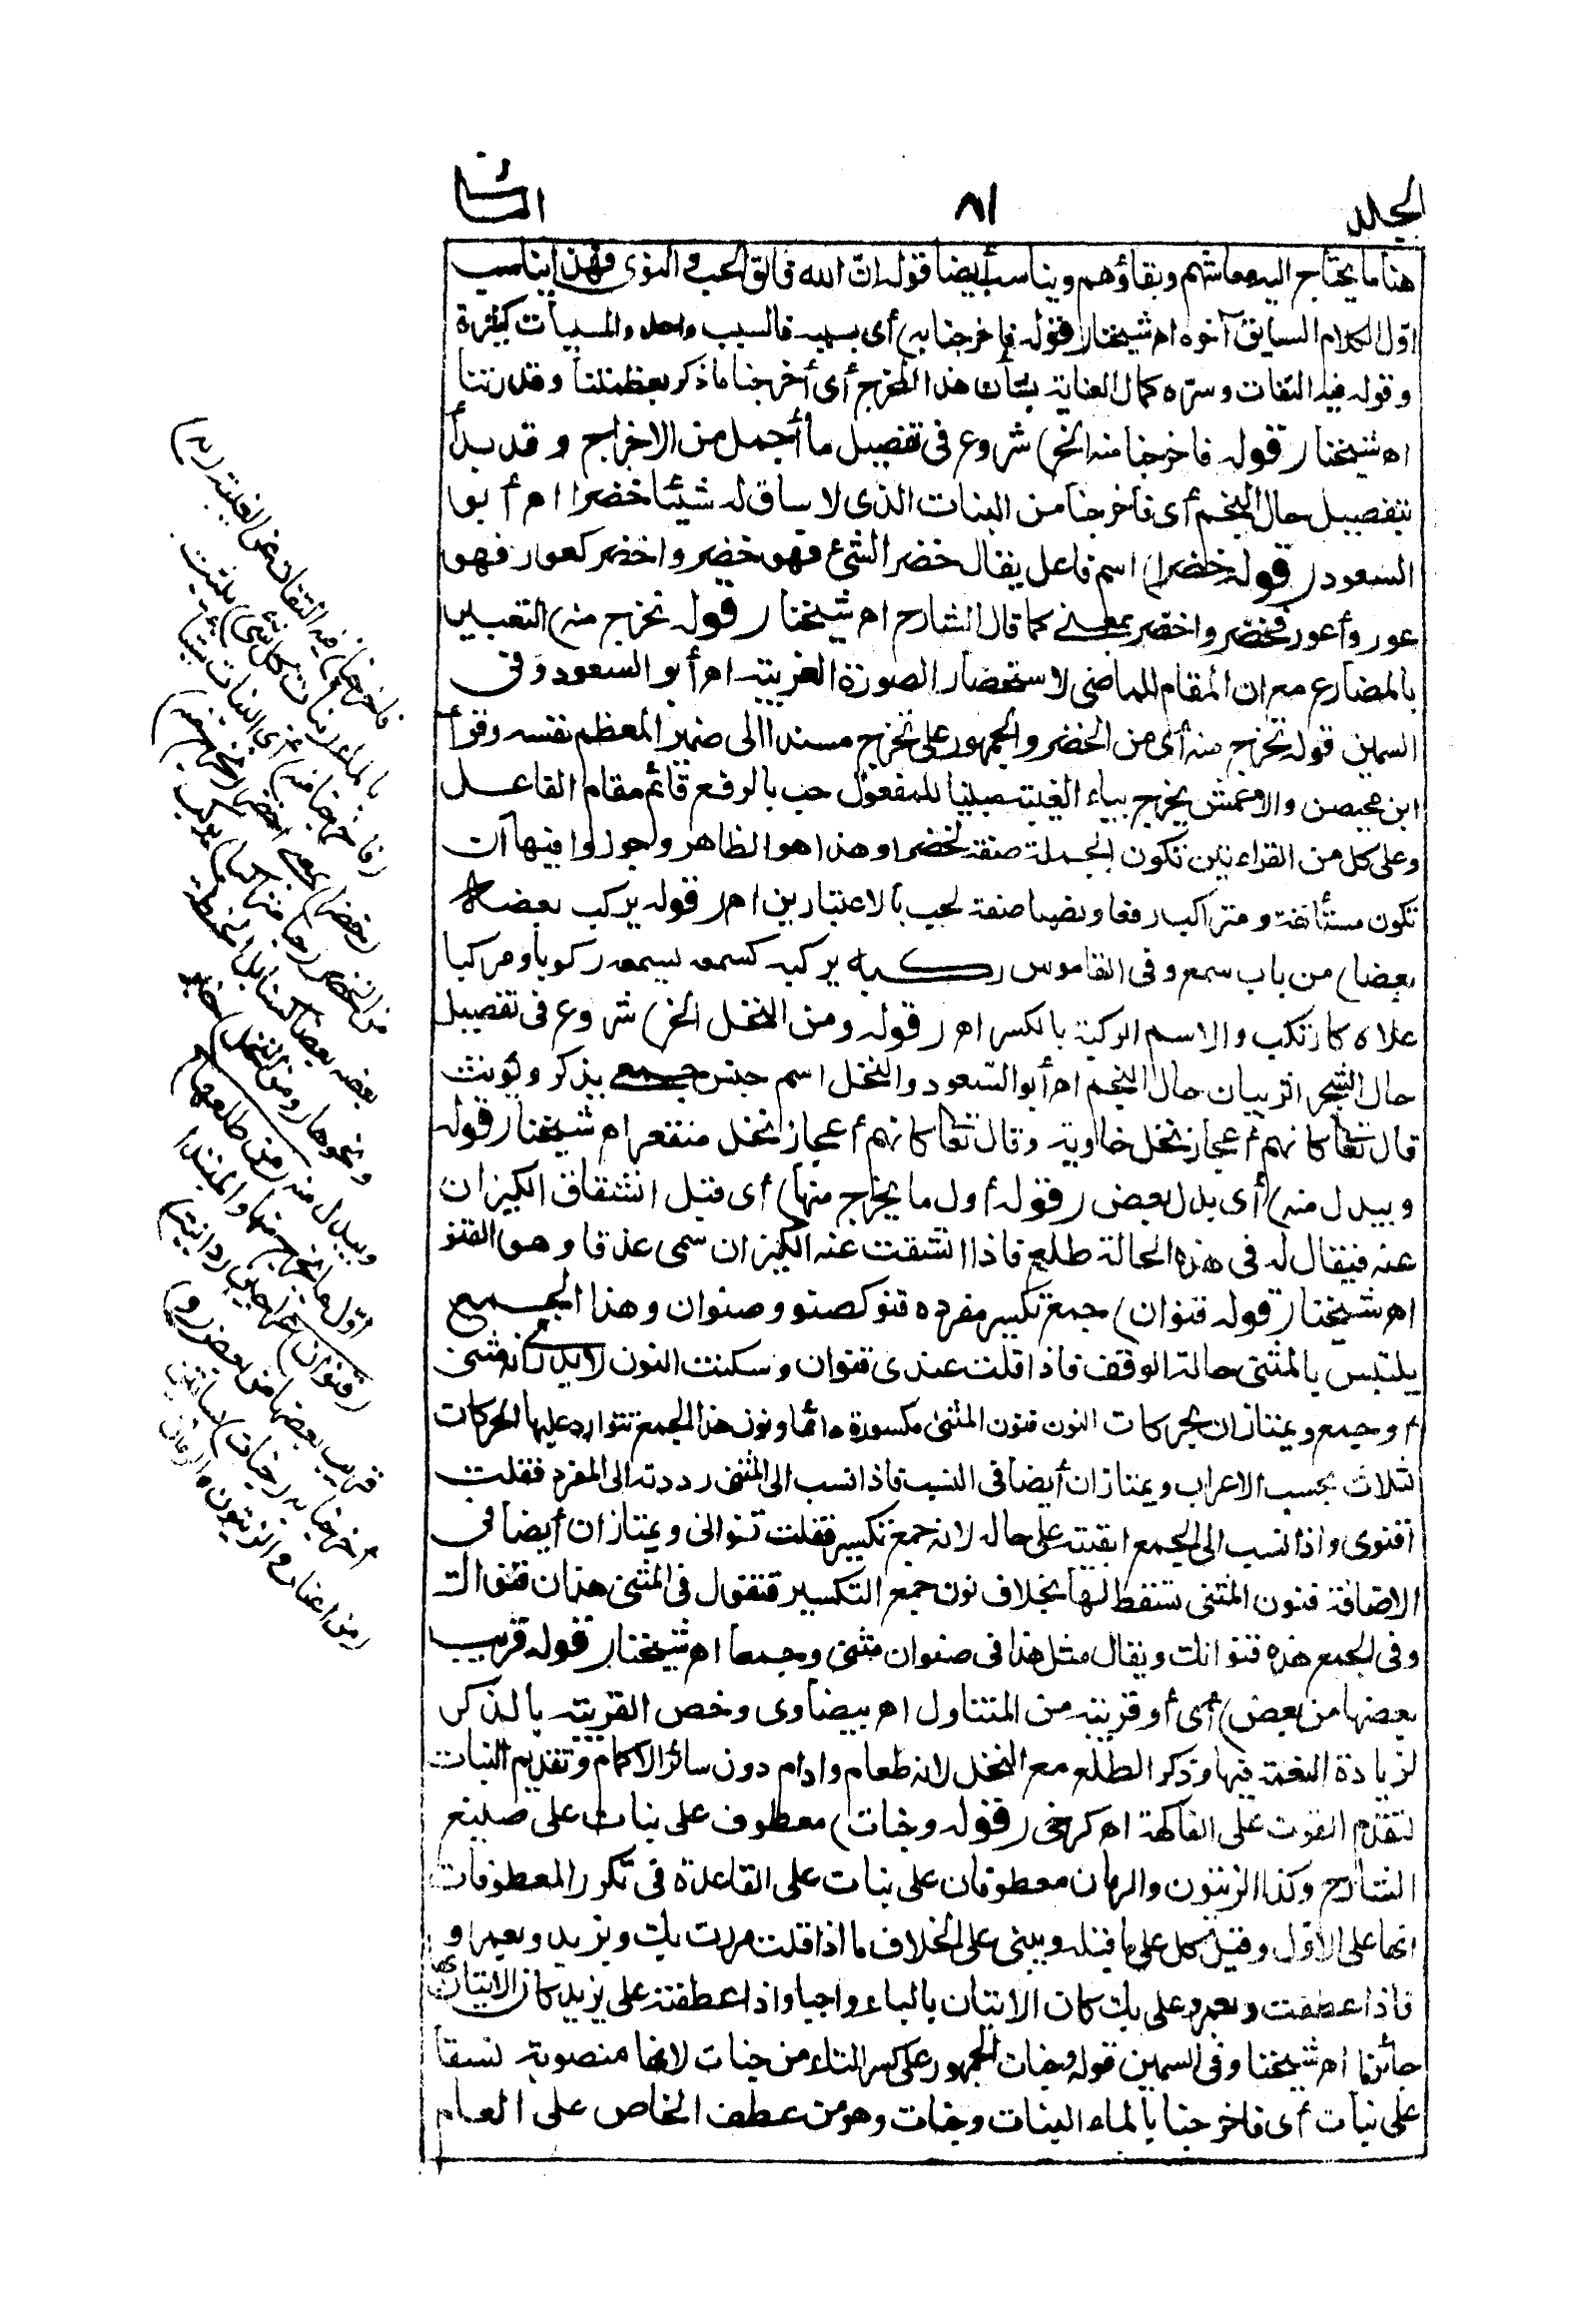 الجلد
٨١
الثانى
هنا ما يحتاج اليه معاشهم وبقاؤهم ويناسب أيضا قوله ان الله فالق الحب والنوى فهذا يناسب
اول الكلام السابق آخره اه شيخنا (قوله فاخرجنا به) أى بسببه فالسبب واحد والمسببات كثيرة
وقوله فيه التفات وسره كمال العناية بشأن هذا المخرج أى أخرجنا ما ذكر بعظمتنا وقدرتنا
اه شيخنا (قوله فاخرجنا منه الخ) شروع فى تفصيل ما أجمل من الاخراج وقد بدأ
بتفصيل حال النجم أى فأخرجنا من النبات الذى لا ساق له شيئا خضرا اه أبوا
السعود (قوله خضرا) اسم فاعل يقال خضر الشئ فهو خضر واخضر كعور فهو
عور وأعور فخضر واخضر بمعنى كما قال الشارح اه شيخنا (قوله نخرج منه) التعبير
بالمضارع مع ان المقام للماضى لاستحضار الصورة الغريبة اه أبو السعود وفى
السمين قوله نخرج منه أى من الخضر والجمهور على نخرج مسندا الى ضمير المعظم نفسه وقرأ
ابن محيصن والاعمش يخرج بياء الغيبة مبنيا للمفعول حب بالرفع قائم مقام الفاعل
وعلى كل من القراءتين تكون الجملة صفة لخضرا وهذا هو الظاهر وجوزوا فيها أن
تكون مستأنفة ومتراكب رفعا ونصبا صفة لحب بالاعتبارين اه (قوله يركب بعضه
بعضا) من باب سمع وفى القاموس ركبه يركبه كسمعه يسمعه ركوبا ومركبا
علاه كارتكب والاسم الركبة بالكسر اه (قوله ومن النخل الخ) شروع فى تفصيل
حال الشجر اثر بيان حال النجم اه أبو السعود والنخل اسم جنس جمعى يذكر ويؤنث
قال تعالى كانهم أعجاز نخل خاوية وقال تعالى كانهم أعجاز نخل منقعر اه شيخنا (قوله
ويبدل منه) أى بدل بعض (قوله أول ما يخرج منها) أى قبل انشقاق الكيزان
عنه فيقال له فى هذه الحالة طلع فاذا انشقت عنه الكيزان سمى عذقا وهو القنو
اه شيخنا (قوله قنوان) جمع تكسير مفرده قنو كصنو وصنوان وهذا الجمع
يلتبس بالمثنى حالة الوقف فاذا قلت عندى قنوان وسكنت النون لا يدرى أنه مثنى
أو جمع ويمتازان بحركات النون فنون المثنى مكسورة دائما ونون هذا الجمع تتوارد عليها الحركات
الثلاث بحسب الاعراب ويمتازان أيضا فى النسب فاذا نسب الى المثنى رددته الى المفرد فقلت
قنوى واذا نسب الى الجمع ابقيته على حاله لانه جمع تكسير فقلت قنوانى ويمتازان أيضا فى
الاضافة فنون المثنى تسقط لها بخلاف نون جمع التكسير فتقول فى المثنى هذان قنواك
وفى الجمع هذه قنوانك ويقال مثل هذا فى صنوان مثنى وجمعا اه شيخنا (قوله قريب
بعضها من بعض) أى أو قريبة من المتناول اه بيضاوى وخص القريبة بالذكر
لزيادة النعمة فيها وذكر الطلع مع النخل لانه طعام وادام دون سائر الاكمام وتقديم النبات
لتقدم القوت على الفاكهة اه كرخى (قوله وجنات) معطوف على نبات على صنيع
الشارح وكذا الزيتون والرمان معطوفان على نبات على القاعدة فى تكرر المعطوفات
انها على الاول وقيل كل على ما قبله ويبنى على الخلاف ما اذا قلت مررت بك وبزيد وبعمرو
فاذا عطفت وبعمرو على بك كان الاتيان بالباء واجبا واذا عطفته على بزيد كان الاتيان بها
جائزا اه شيخنا وفى السمين قوله وجنات الجمهور على كسر التاء من جنات لانها منصوبة نسقا
على نبات أى فاخرجنا بالماء النبات وجنات وهو من عطف الخاص على العام
فاخرجنا) فيه التفات عن الغيبة (به)
بالماء (نبات كل شئ) ينبت
(فاخرجنا منه) أى النبات شيئا
(خضرا) بمعنى اخضر (نخرج منه)
من الخضر (حبا متراكبا) يركب
بعضه بعضا كسنابل الحنطة
ونحوها (ومن النخل) خبر
ويبدل منه (من طلعها)
أول ما يخرج منها والمبتدأ
(قنوان) عراجين (دانية)
قريب بعضها من بعض (و)
أخرجنا به (جنات) بساتين
(من اعناب والزيتون والرمان